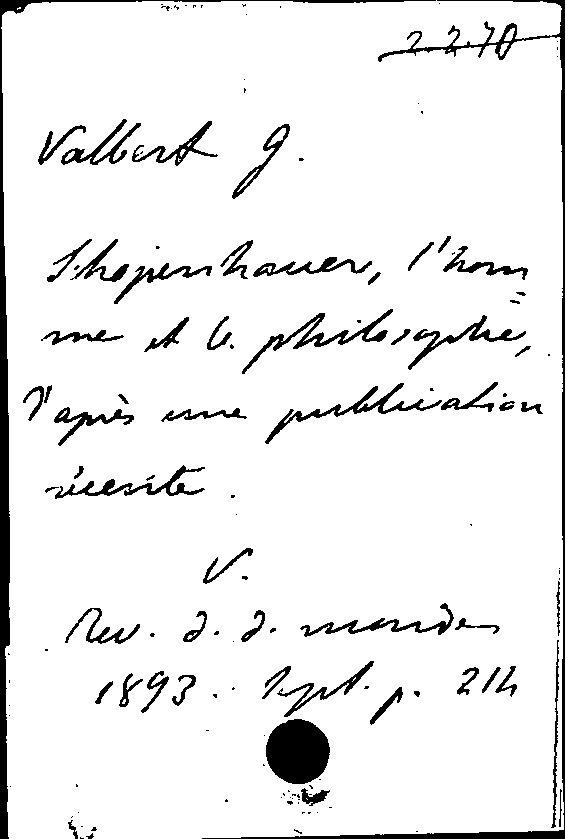 2.2.70
Valbert G.
Schopenhauer, l'hom=
me et le philosophe,
d'après une publication
récente.
V.
Rev. d. d. mondes
1893. Sept. p. 214